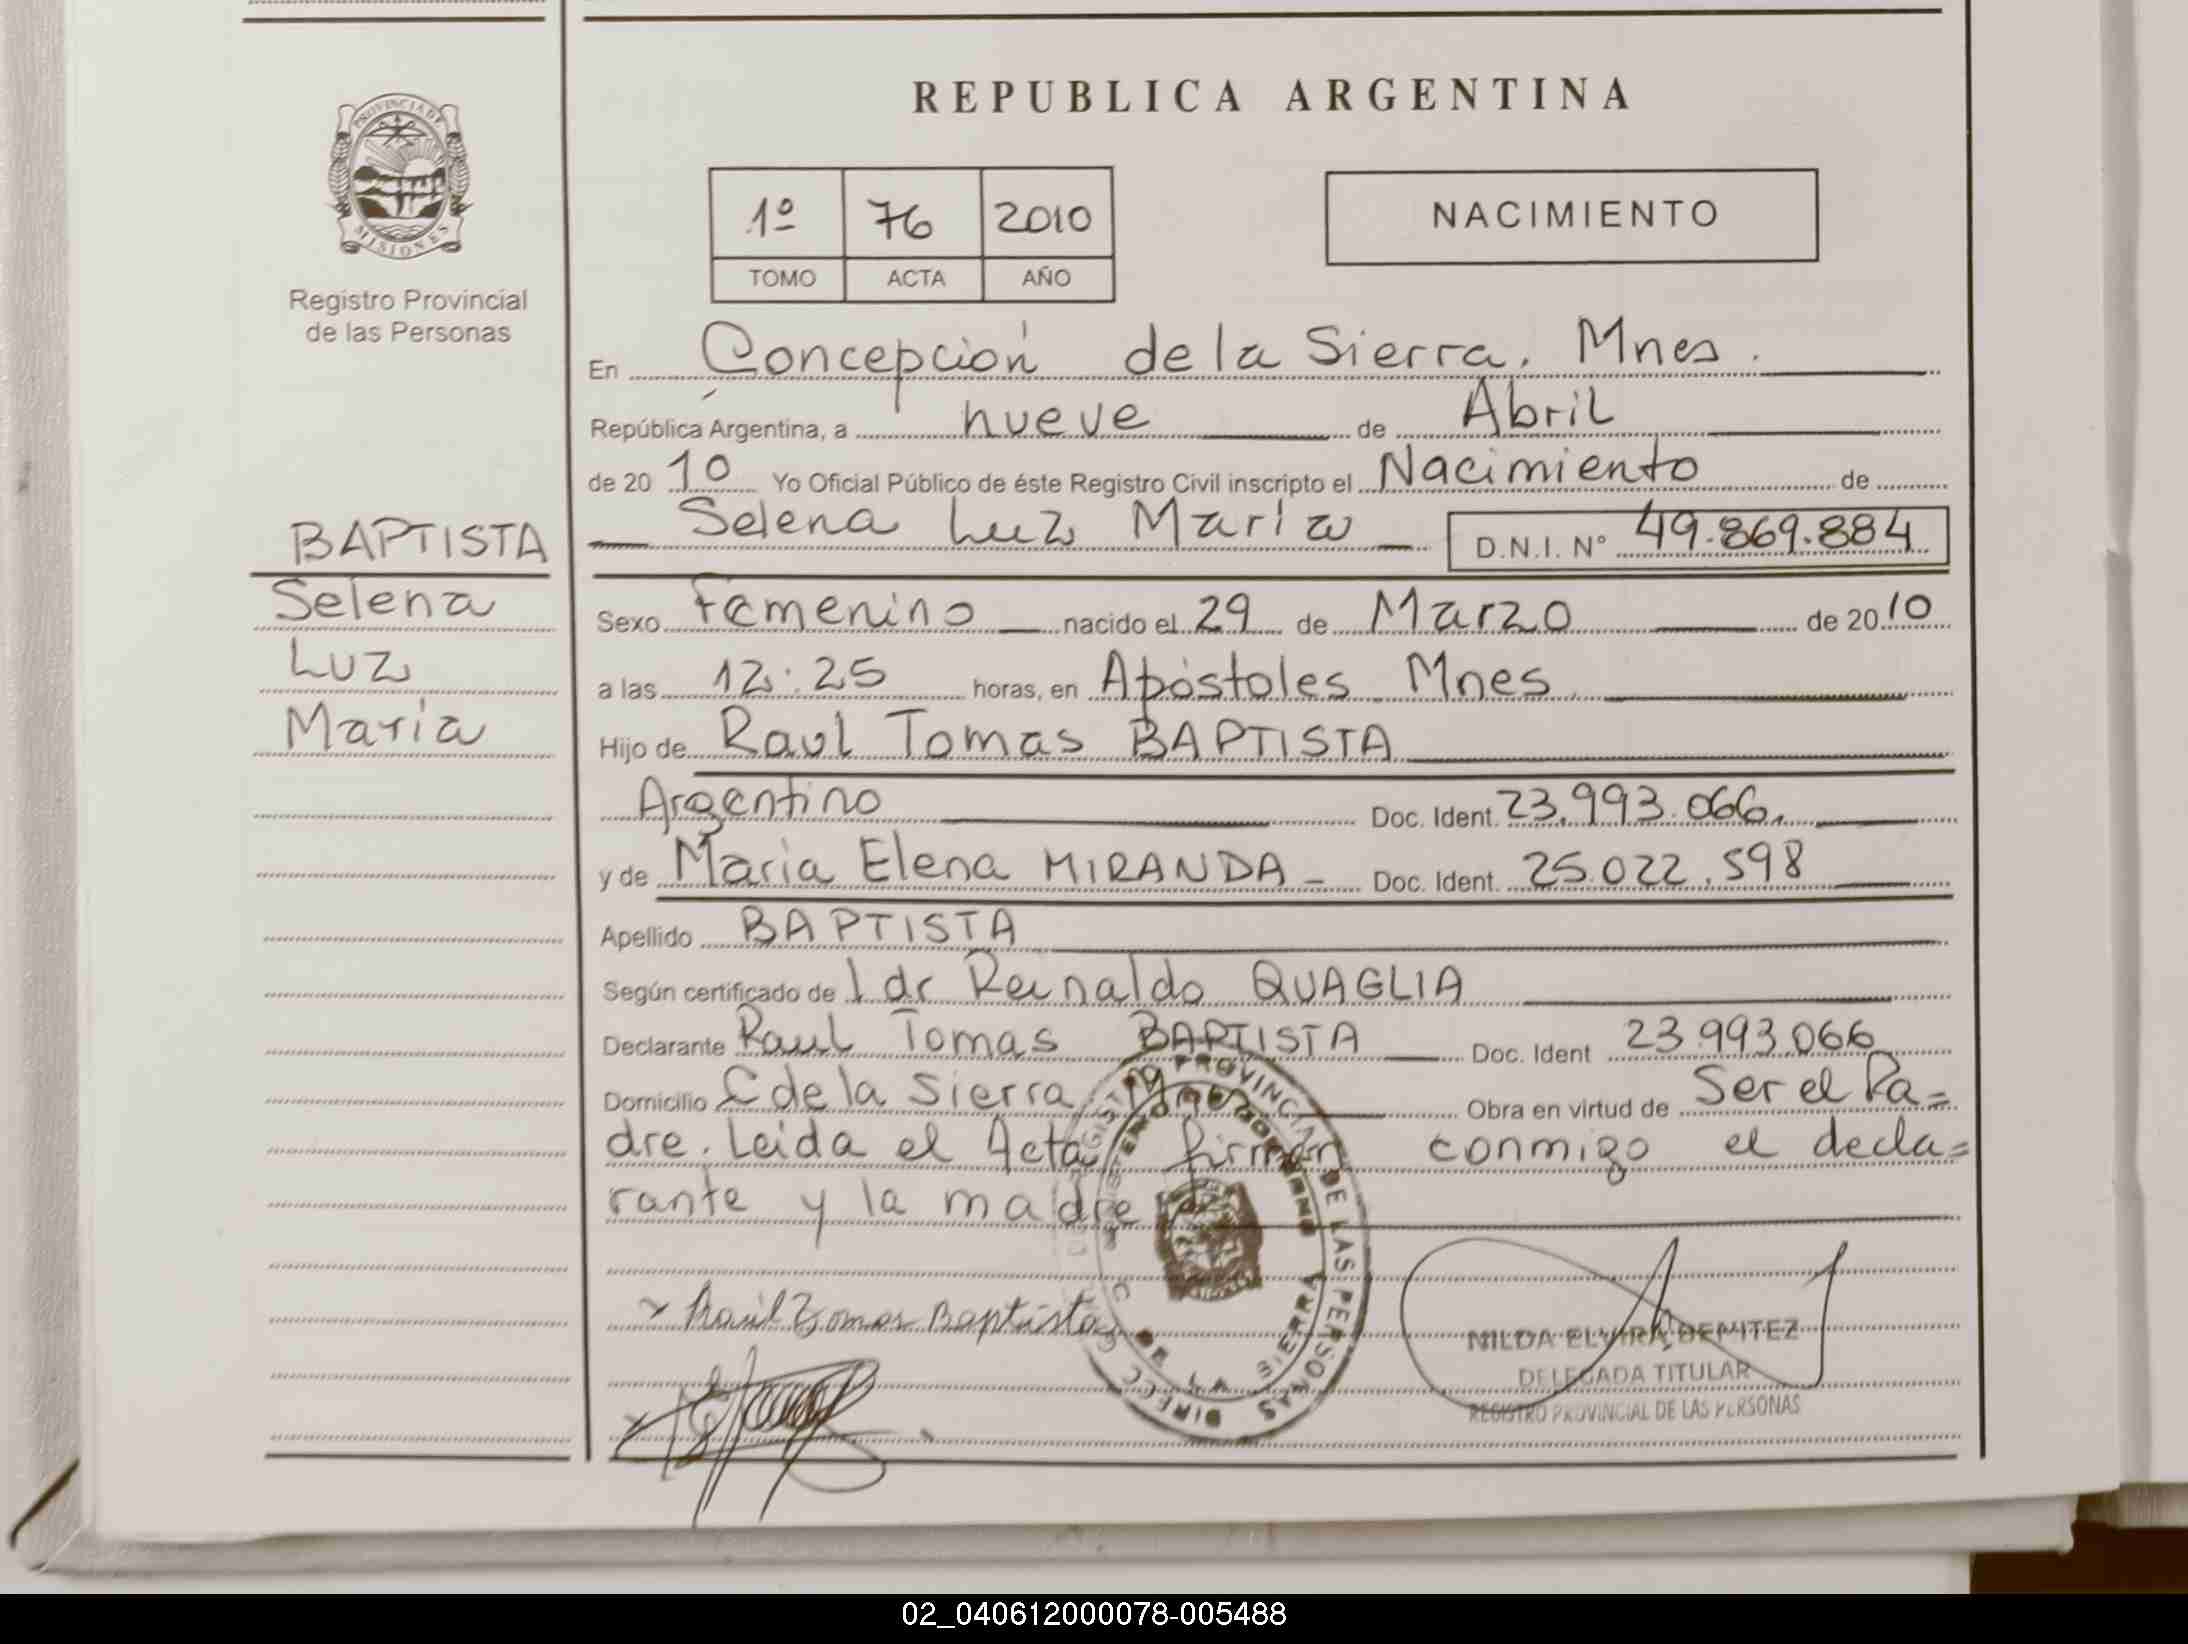 REPUBLICA ARGENTINA
PROVINCIA DE
MISIONES
Registro Provincial
de las Personas
1º 76 2010
TOMO ACTA AÑO
NACIMIENTO
En Concepción de la Sierra. Mnes.
República Argentina, a nueve de Abril
de 20 10 Yo Oficial Público de éste Registro Civil inscripto el Nacimiento de
Selena Luz María D.N.I. Nº 49.869.884
BAPTISTA
Selena
Luz
María
Sexo Femenino nacido el 29 de Marzo de 20 10
a las 12:25 horas, en Apóstoles Mnes.
Hijo de Raul Tomas BAPTISTA
Argentino Doc. Ident. 23.993.066.
y de Maria Elena MIRANDA - Doc. Ident. 25.022.598
Apellido BAPTISTA
Según certificado de l dr Reinaldo QUAGLIA
Declarante Raul Tomas BAPTISTA Doc. Ident 23.993.066
Domicilio C de la Sierra Mnes Obra en virtud de Ser el Pa=
dre. Leida el Acta firman conmigo el decla=
rante y la madre
Raúl Tomas Baptista
DE LA SIERRA
NILDA ELVIRA BENITEZ
DELEGADA TITULAR
REGISTRO PROVINCIAL DE LAS PERSONAS
02_040612000078-005488